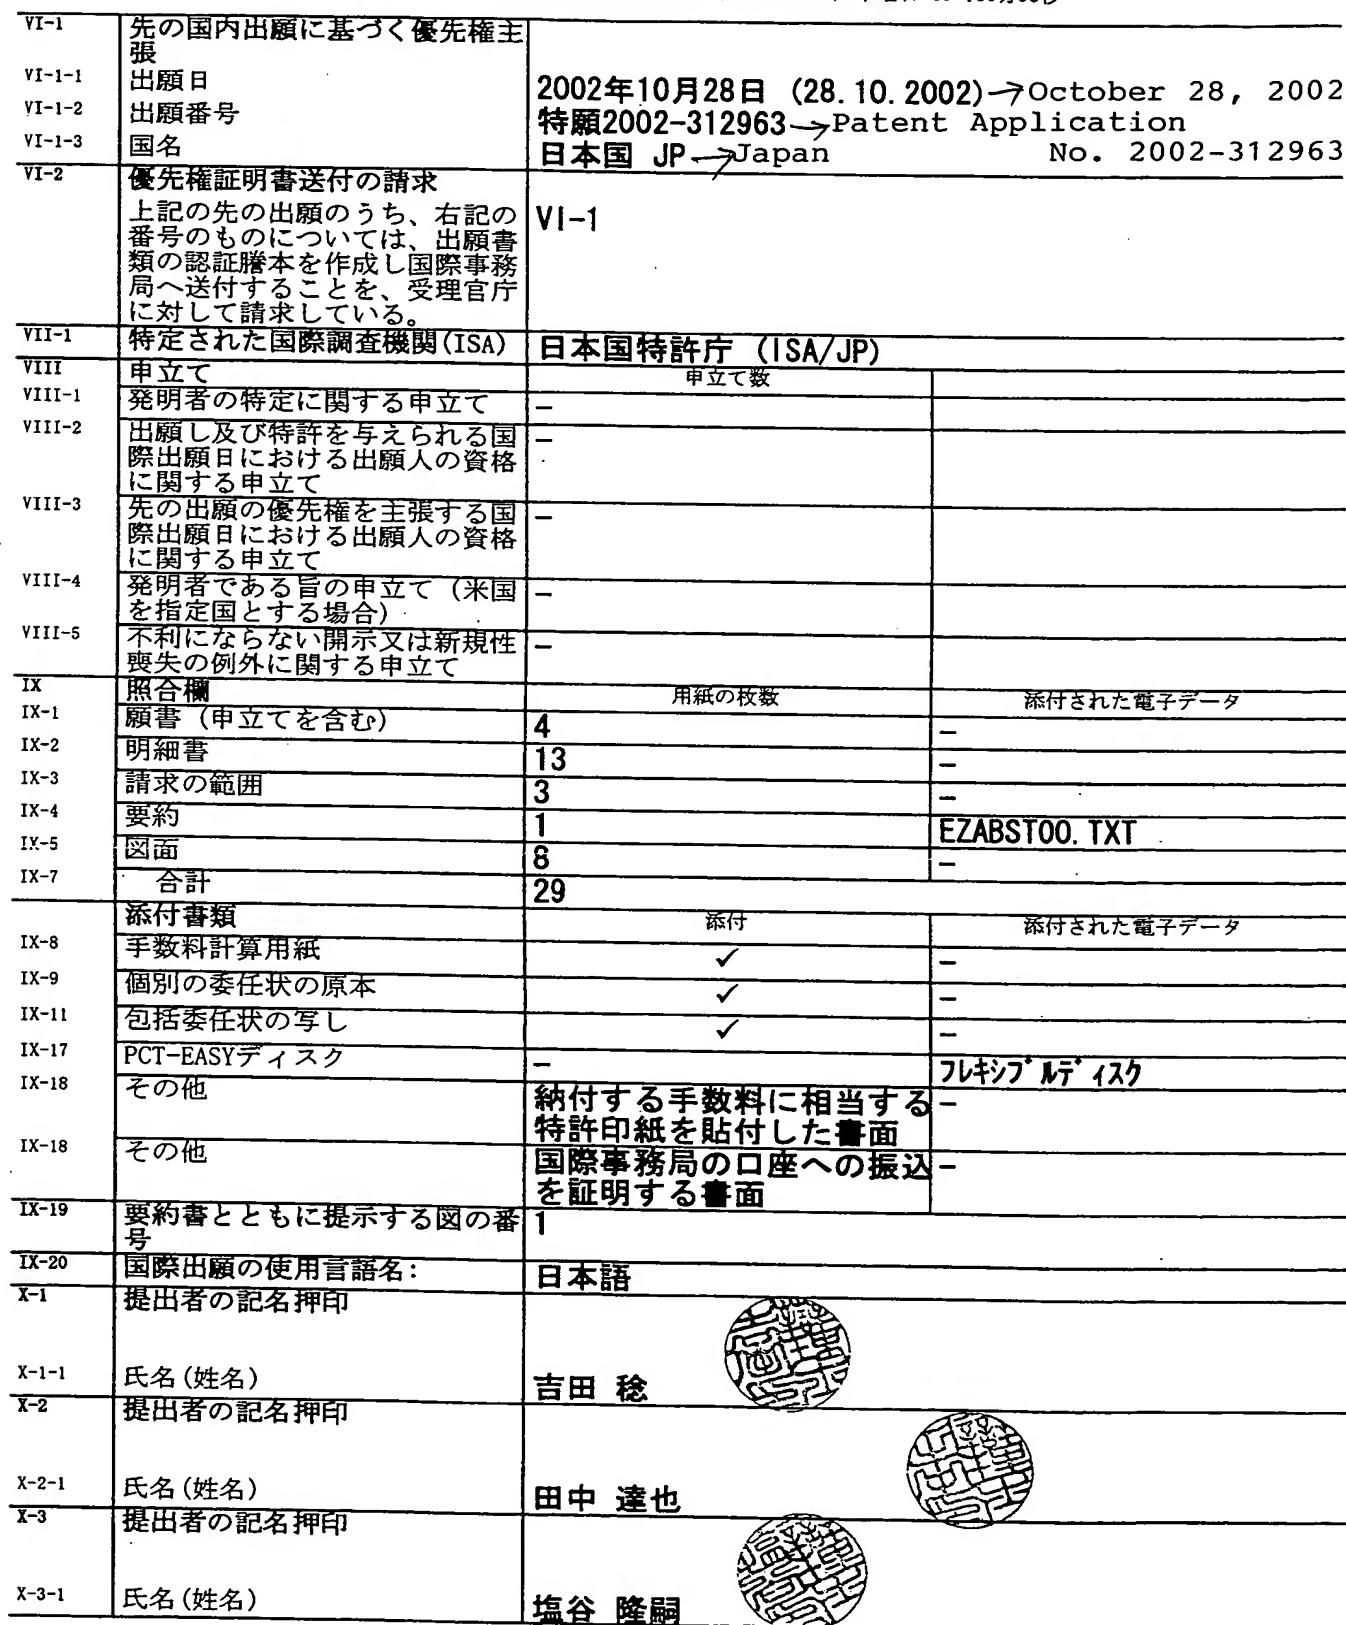 VI-1 先の国内出願に基づく優先権主
張
VI-1-1 出願日 2002年10月28日 (28.10.2002)→October 28, 2002
VI-1-2 出願番号 特願2002-312963→Patent Application
VI-1-3 国名 日本国 JP→Japan No. 2002-312963
VI-2 優先権証明書送付の請求
上記の先の出願のうち、右記の VI-1
番号のものについては、出願書
類の認証謄本を作成し国際事務
局へ送付することを、受理官庁
に対して請求している。
VII-1 特定された国際調査機関(ISA) 日本国特許庁 (ISA/JP)
VIII 申立て 申立て数
VIII-1 発明者の特定に関する申立て –
VIII-2 出願し及び特許を与えられる国 –
際出願日における出願人の資格
に関する申立て
VIII-3 先の出願の優先権を主張する国 –
際出願日における出願人の資格
に関する申立て
VIII-4 発明者である旨の申立て（米国 –
を指定国とする場合）
VIII-5 不利にならない開示又は新規性 –
喪失の例外に関する申立て
IX 照合欄 用紙の枚数 添付された電子データ
IX-1 願書（申立てを含む） 4 –
IX-2 明細書 13 –
IX-3 請求の範囲 3 –
IX-4 要約 1 EZABST00.TXT
IX-5 図面 8 –
IX-7 合計 29
添付書類 添付 添付された電子データ
IX-8 手数料計算用紙 ✓ –
IX-9 個別の委任状の原本 ✓ –
IX-11 包括委任状の写し ✓ –
IX-17 PCT-EASYディスク – フレキシブルディスク
IX-18 その他 納付する手数料に相当する –
特許印紙を貼付した書面
IX-18 その他 国際事務局の口座への振込 –
を証明する書面
IX-19 要約書とともに提示する図の番 1
号
IX-20 国際出願の使用言語名: 日本語
X-1 提出者の記名押印
X-1-1 氏名(姓名) 吉田 稔
X-2 提出者の記名押印
X-2-1 氏名(姓名) 田中 達也
X-3 提出者の記名押印
X-3-1 氏名(姓名) 塩谷 隆嗣